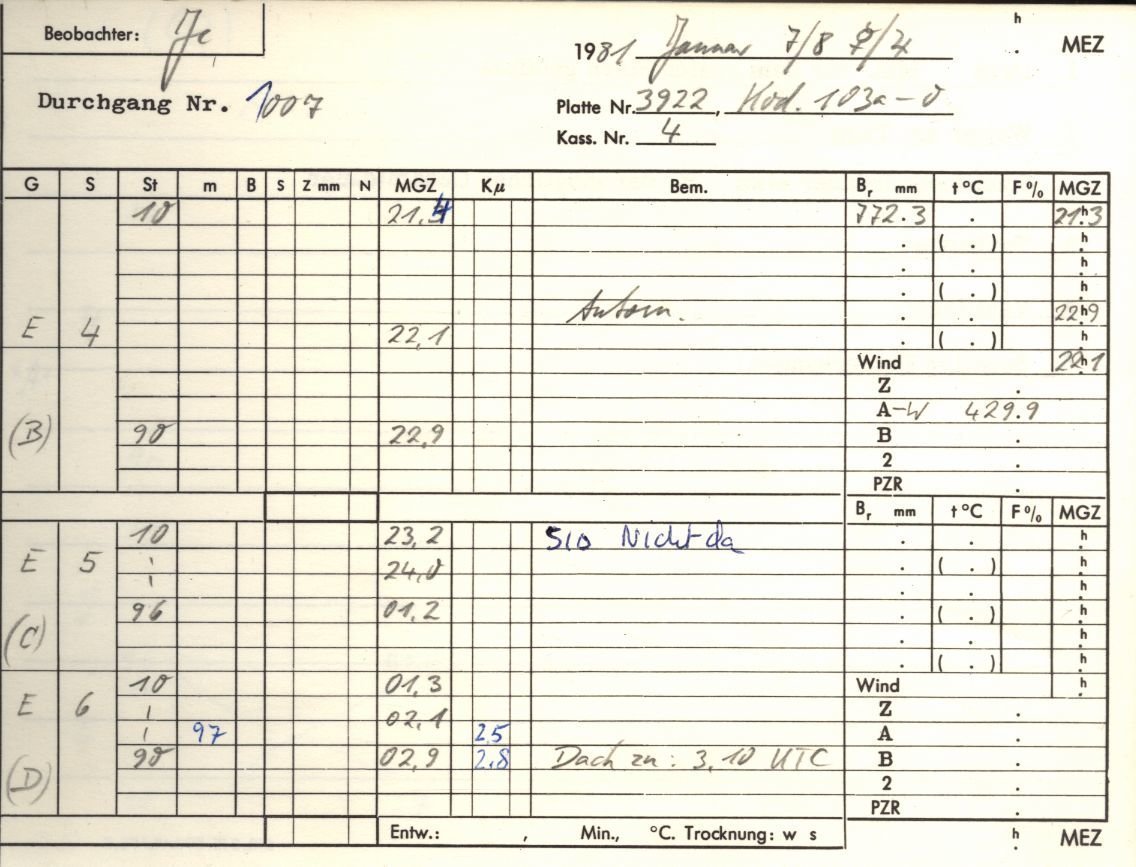 Beobachter: Je
1981 Januar 7/8 ☿/4 h . MEZ
Durchgang Nr. 1007
Platte Nr. 3922, Kod. 103a-0
Kass. Nr. 4
G S St m B S Z mm N MGZ Kµ Bem. Br mm t °C F % MGZ
10 21,4 772.3 . 21h.3
. ( . ) h.
. . h.
. ( . ) h.
Autom. . . 22h9
E 4 22,1 . ( . ) h.
Wind 22h1
Z .
A-W 429.9
(B) 90 22,9 B .
2 .
PZR .
Br mm t °C F % MGZ
10 23,2 S10 Nicht da . . h.
E 5 ¦ 24,0 . ( . ) h.
. . h.
96 01,2 . ( . ) h.
(C) . . h.
. ( . ) h.
10 01,3 Wind h.
E 6 ¦ 02,1 Z .
97 25 A .
(D) 90 02,9 2,8 Dach zu: 3,10 UTC B .
2 .
PZR .
Entw.: , Min., °C. Trocknung: w s h . MEZ